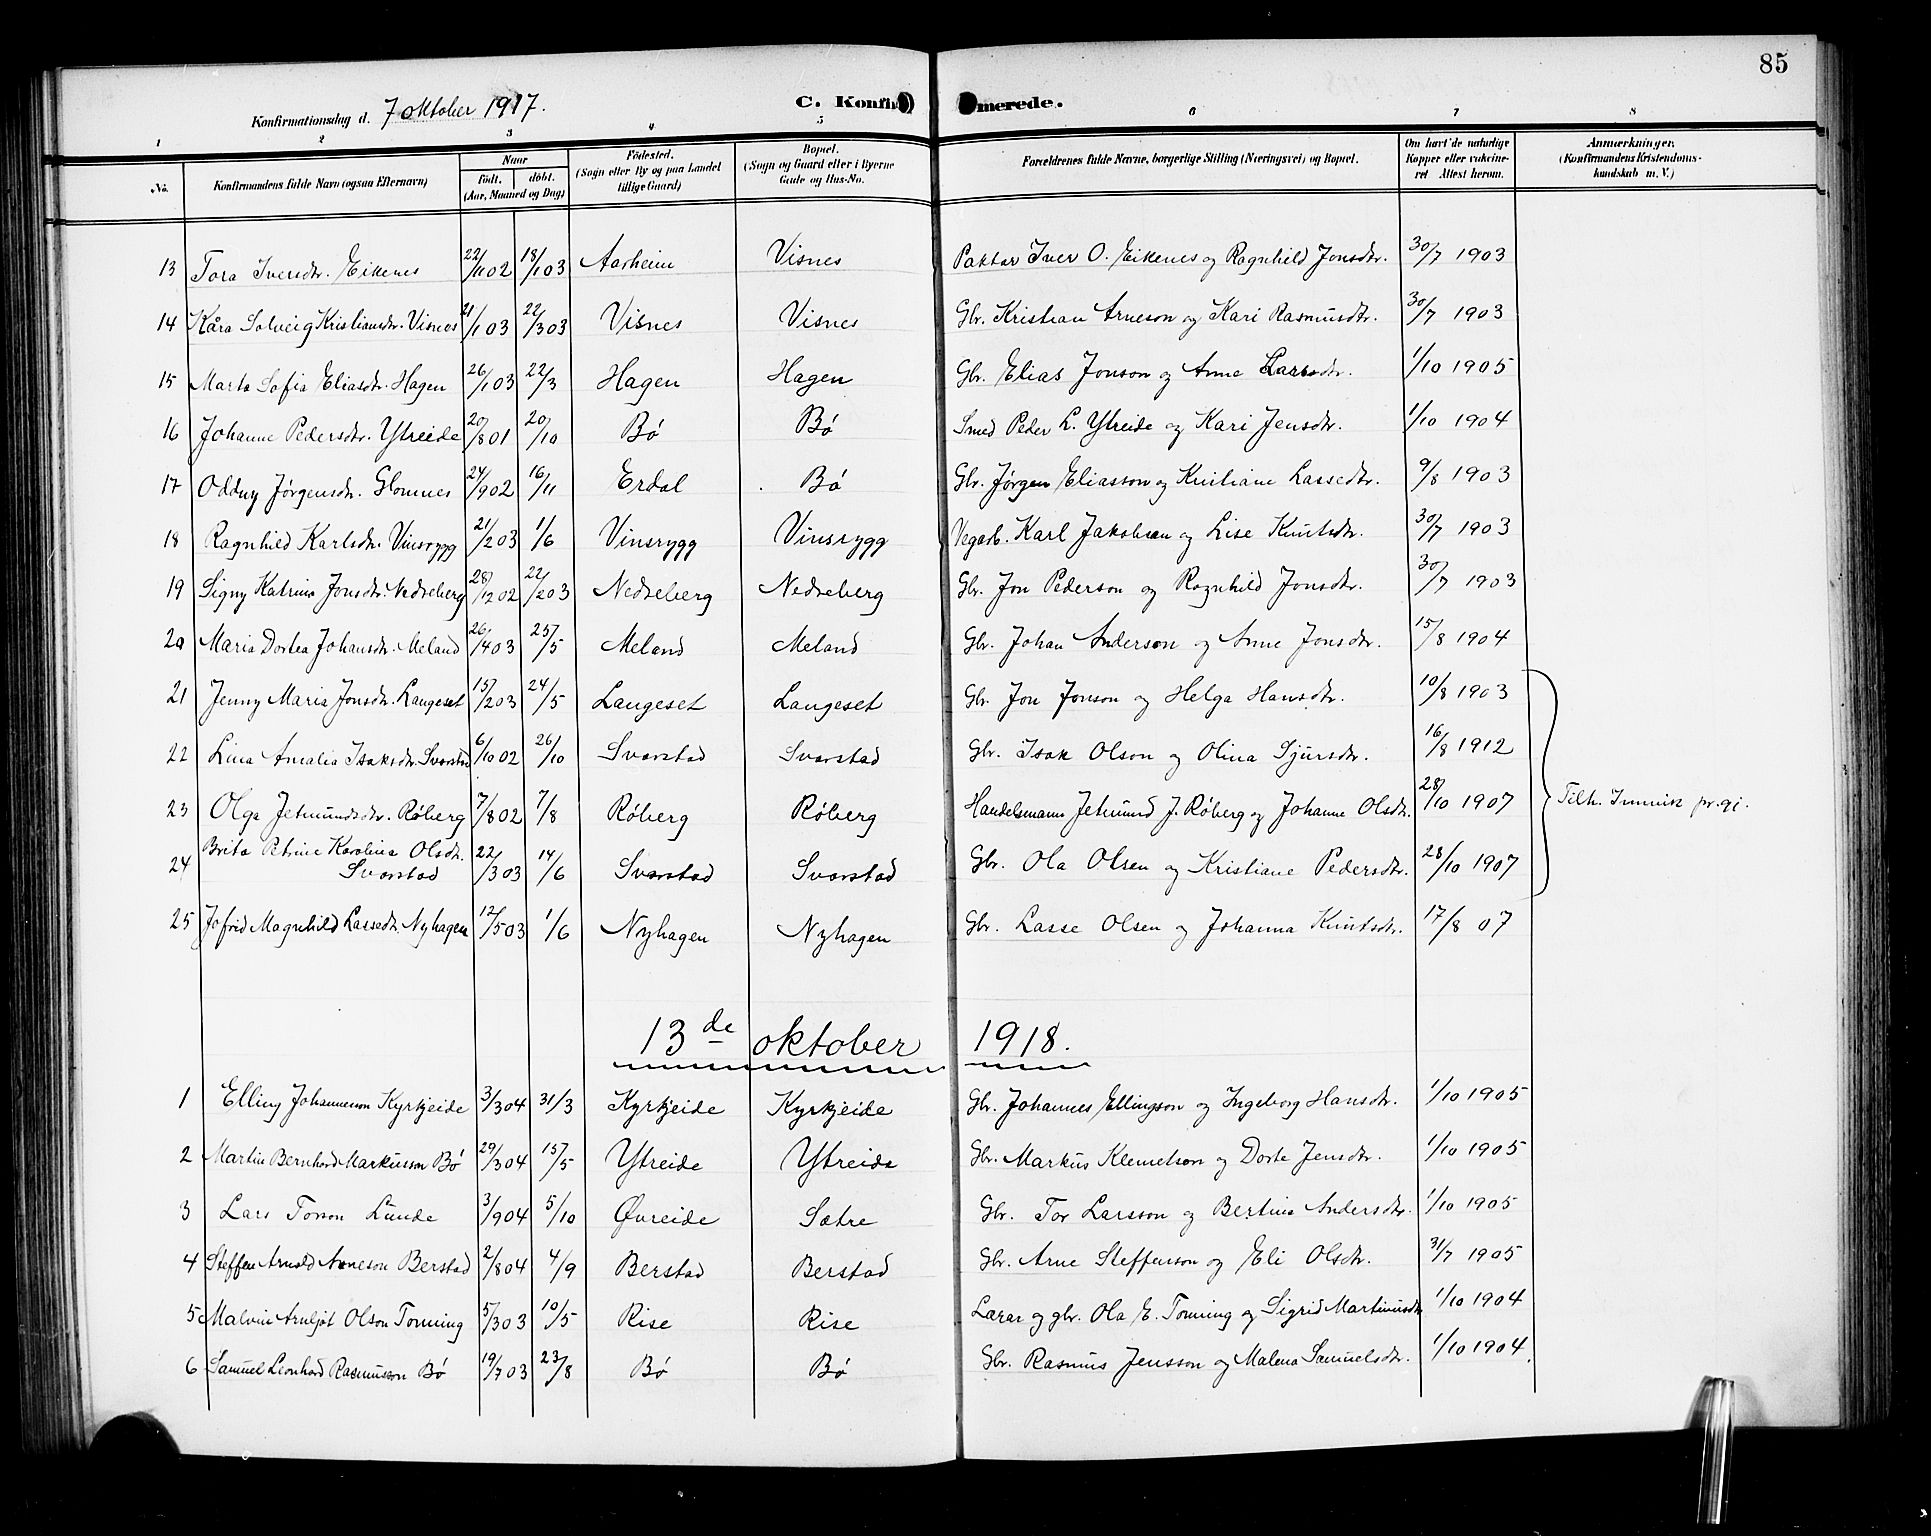 85
Konfirmationsdag d. 7 oktober 1917. C. Konfir merede.
1 2 3 4 5 6 7 8
No. Konfirmandens fulde Navn (ogsaa Efternavn) Naar født. døbt. (Aar, Maaned og Dag) Fødested. (Sogn eller By og paa Landet tillige Gaard) Bopæl. (Sogn og Gaard eller i Byerne Gade og Hus-No. Forældrenes fulde Navne, borgerlige Stilling (Næringsvei) og Bopæl. Om havt de naturlige Kopper eller vakcineret. Attest herom. Anmærkninger. (Konfirmandens Kristendomskundskab m. V.)
13 Tora Iversdtr. Eikenes 22/11 02 18/1 03 Aarheim Visnes Paktar Iver O. Eikenes og Ragnhild Jonsdtr. 30/7 1903
14 Kåra Solveig Kristiansdtr. Visnes 21/1 03 22/3 03 Visnes Visnes Gbr. Kristian Arneson og Kari Rasmusdtr. 30/7 1903
15 Marta Sofia Eliasdtr. Hagen 26/1 03 22/3 Hagen Hagen Gbr. Elias Jonson og Anne Larsdtr. 1/10 1905
16 Johanne Pedersdtr. Ytreide 20/8 01 20/10 Bø Bø Smed Peder L. Ytreide og Kari Jensdtr. 1/10 1904
17 Oddny Jørgensdtr. Glomnes 24/9 02 16/11 Erdal Bø Gbr. Jørgen Eliasson og Kristiane Lassedtr. 9/8 1903
18 Ragnhild Karlsdtr. Vinsrygg 21/2 03 1/6 Vinsrygg Vinsrygg Vegarb. Karl Jakobsen og Lise Knutsdtr. 30/7 1903
19 Signy Katrina Jonsdtr. Nedreberg 28/12 02 22/2 03 Nedreberg Nedreberg Gbr. Jon Pederson og Ragnhild Jonsdtr. 30/7 1903
20 Maria Dortea Johansdtr. Meland 26/4 03 25/5 Meland Meland Gbr. Johan Anderson og Anne Jonsdtr. 15/8 1904
21 Jenny Maria Jonsdtr. Langeset 15/2 03 24/5 Langeset Langeset Gbr. Jon Jonson og Helga Hansdtr. 10/8 1903
22 Lina Amalia Isaksdtr. Svorstad 6/10 02 26/10 Svarstad Svarstad Gbr. Isak Olson og Olina Sjursdtr. 16/8 1912
23 Olga Jetmundsdtr. Røberg 7/8 02 7/8 Røberg Røberg Handelsmann Jetmund J. Røberg og Johanne Olsdtr. 28/10 1907 Tilh. Innvik pr.gj.
24 Brita Petrine Karolina Olsdtr. Svorstad 22/3 03 14/6 Svorstad Svorstad Gbr. Ola Olsen og Kristiane Pedersdtr. 28/10 1907
25 Jofrid Magnhild Lassedtr. Nyhagen 12/5 03 1/6 Nyhagen Nyhagen Gbr. Lasse Olsen og Johanna Knutsdtr. 17/8 07
13 de oktober 1918.
1 Elling Johanneson Kyrkjeide 3/3 04 31/3 Kyrkjeide Kyrkjeide Gbr. Johannes Ellingson og Ingeborg Hansdtr. 1/10 1905
2 Martin Bernhard Markusson Bø 29/3 04 15/5 Ytreide Ytreide Gbr. Markus Klemetson og Dorte Jensdtr. 1/10 1905
3 Lars Torson Lunde 3/9 04 5/10 Øvreide Sætre Gbr. Tor Larsson og Bertina Andersdtr. 1/10 1905
4 Steffen Arnold Arneson Berstad 2/8 04 4/9 Berstad Berstad Gbr. Arne Steffenson og Eli Olsdtr. 31/7 1905
5 Malvin Arnljot Olson Tonning 5/3 03 10/5 Rise Rise Lærar og gbr. Ola E. Tonning og Sigrid Martinusdtr 1/10 1904
6 Samuel Leonhard Rasmusson Bø 19/7 03 23/8 Bø Bø Gbr. Rasmus Jensson og Malena Samuelsdtr. 1/10 1904.